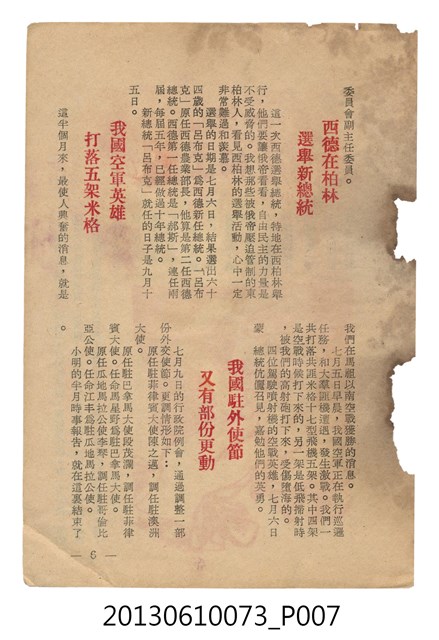 委員會副主任委員。
西德在柏林
選舉新總統
這一次西德選舉總統，特地在西柏林舉
行，他們要讓俄帝看看，自由民主的力量是
不受威脅的。我想那些被俄帝壓迫管制的東
柏林人，看見西柏林的選舉活動，心中一定
非常難過和羨慕。
選舉的日期是七月六日，結果選出六十
四歲的「呂布克」為西德新任總統。「呂布
克」原任西德農業部長，他算是第二任西德
總統。西德第一任總統是「郝斯」，連任兩
屆，每屆五年，已經做過十年總統。
新總統「呂布克」就任的日子是九月十
五日。
我國空軍英雄
打落五架米格
這半個月來，最使人興奮的消息，就是
我們在馬祖以南空戰獲勝的消息。
七月五日早晨，我國空軍正在執行巡邏
任務，和大羣匪機遭遇，發生激戰。我們一
共打落共匪米格十七型飛機五架。其中四架
是空戰時候打下來的，另一架是低飛掃射時
，被我們的高射砲打下來，受傷墮海的。
四位駕駛噴射機的空戰英雄，七月六日
蒙　總統伉儷召見，嘉勉他們的英勇。
我國駐外使節
又有部份更動
七月九日的行政院例會，通過調整一部
份外交使節。更調情形如下：
原任駐菲律賓大使陳之邁，調任駐澳洲
大使。
原任駐巴拿馬大使段茂瀾，調任駐菲律
賓大使。任命馬星野為駐巴拿馬大使。
原任瓜地馬拉公使李琴，調任駐哥倫比
亞公使。任命江丰為駐瓜地馬拉公使。
小明的半月時事報告，就在這裏結束了
。
— 6 —
20130610073_P007